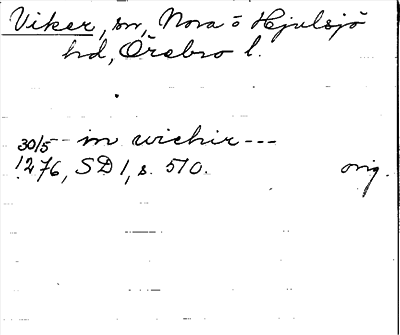 Viker, sn, Nora o Hjulsjö
hd, Örebro l.
30/5 -- in wichir ---
1276, SD 1, s. 510. orig.